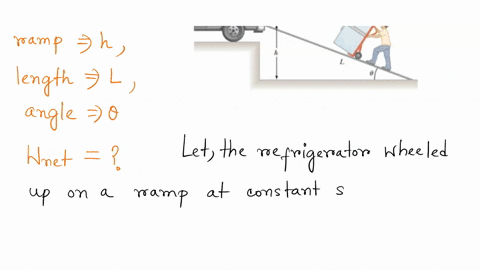 ramp ⇒ h,
length ⇒ L,
angle ⇒ θ
Wnet = ?
Let, the refrigerator wheeled
up on a ramp at constant s
h
L
θ